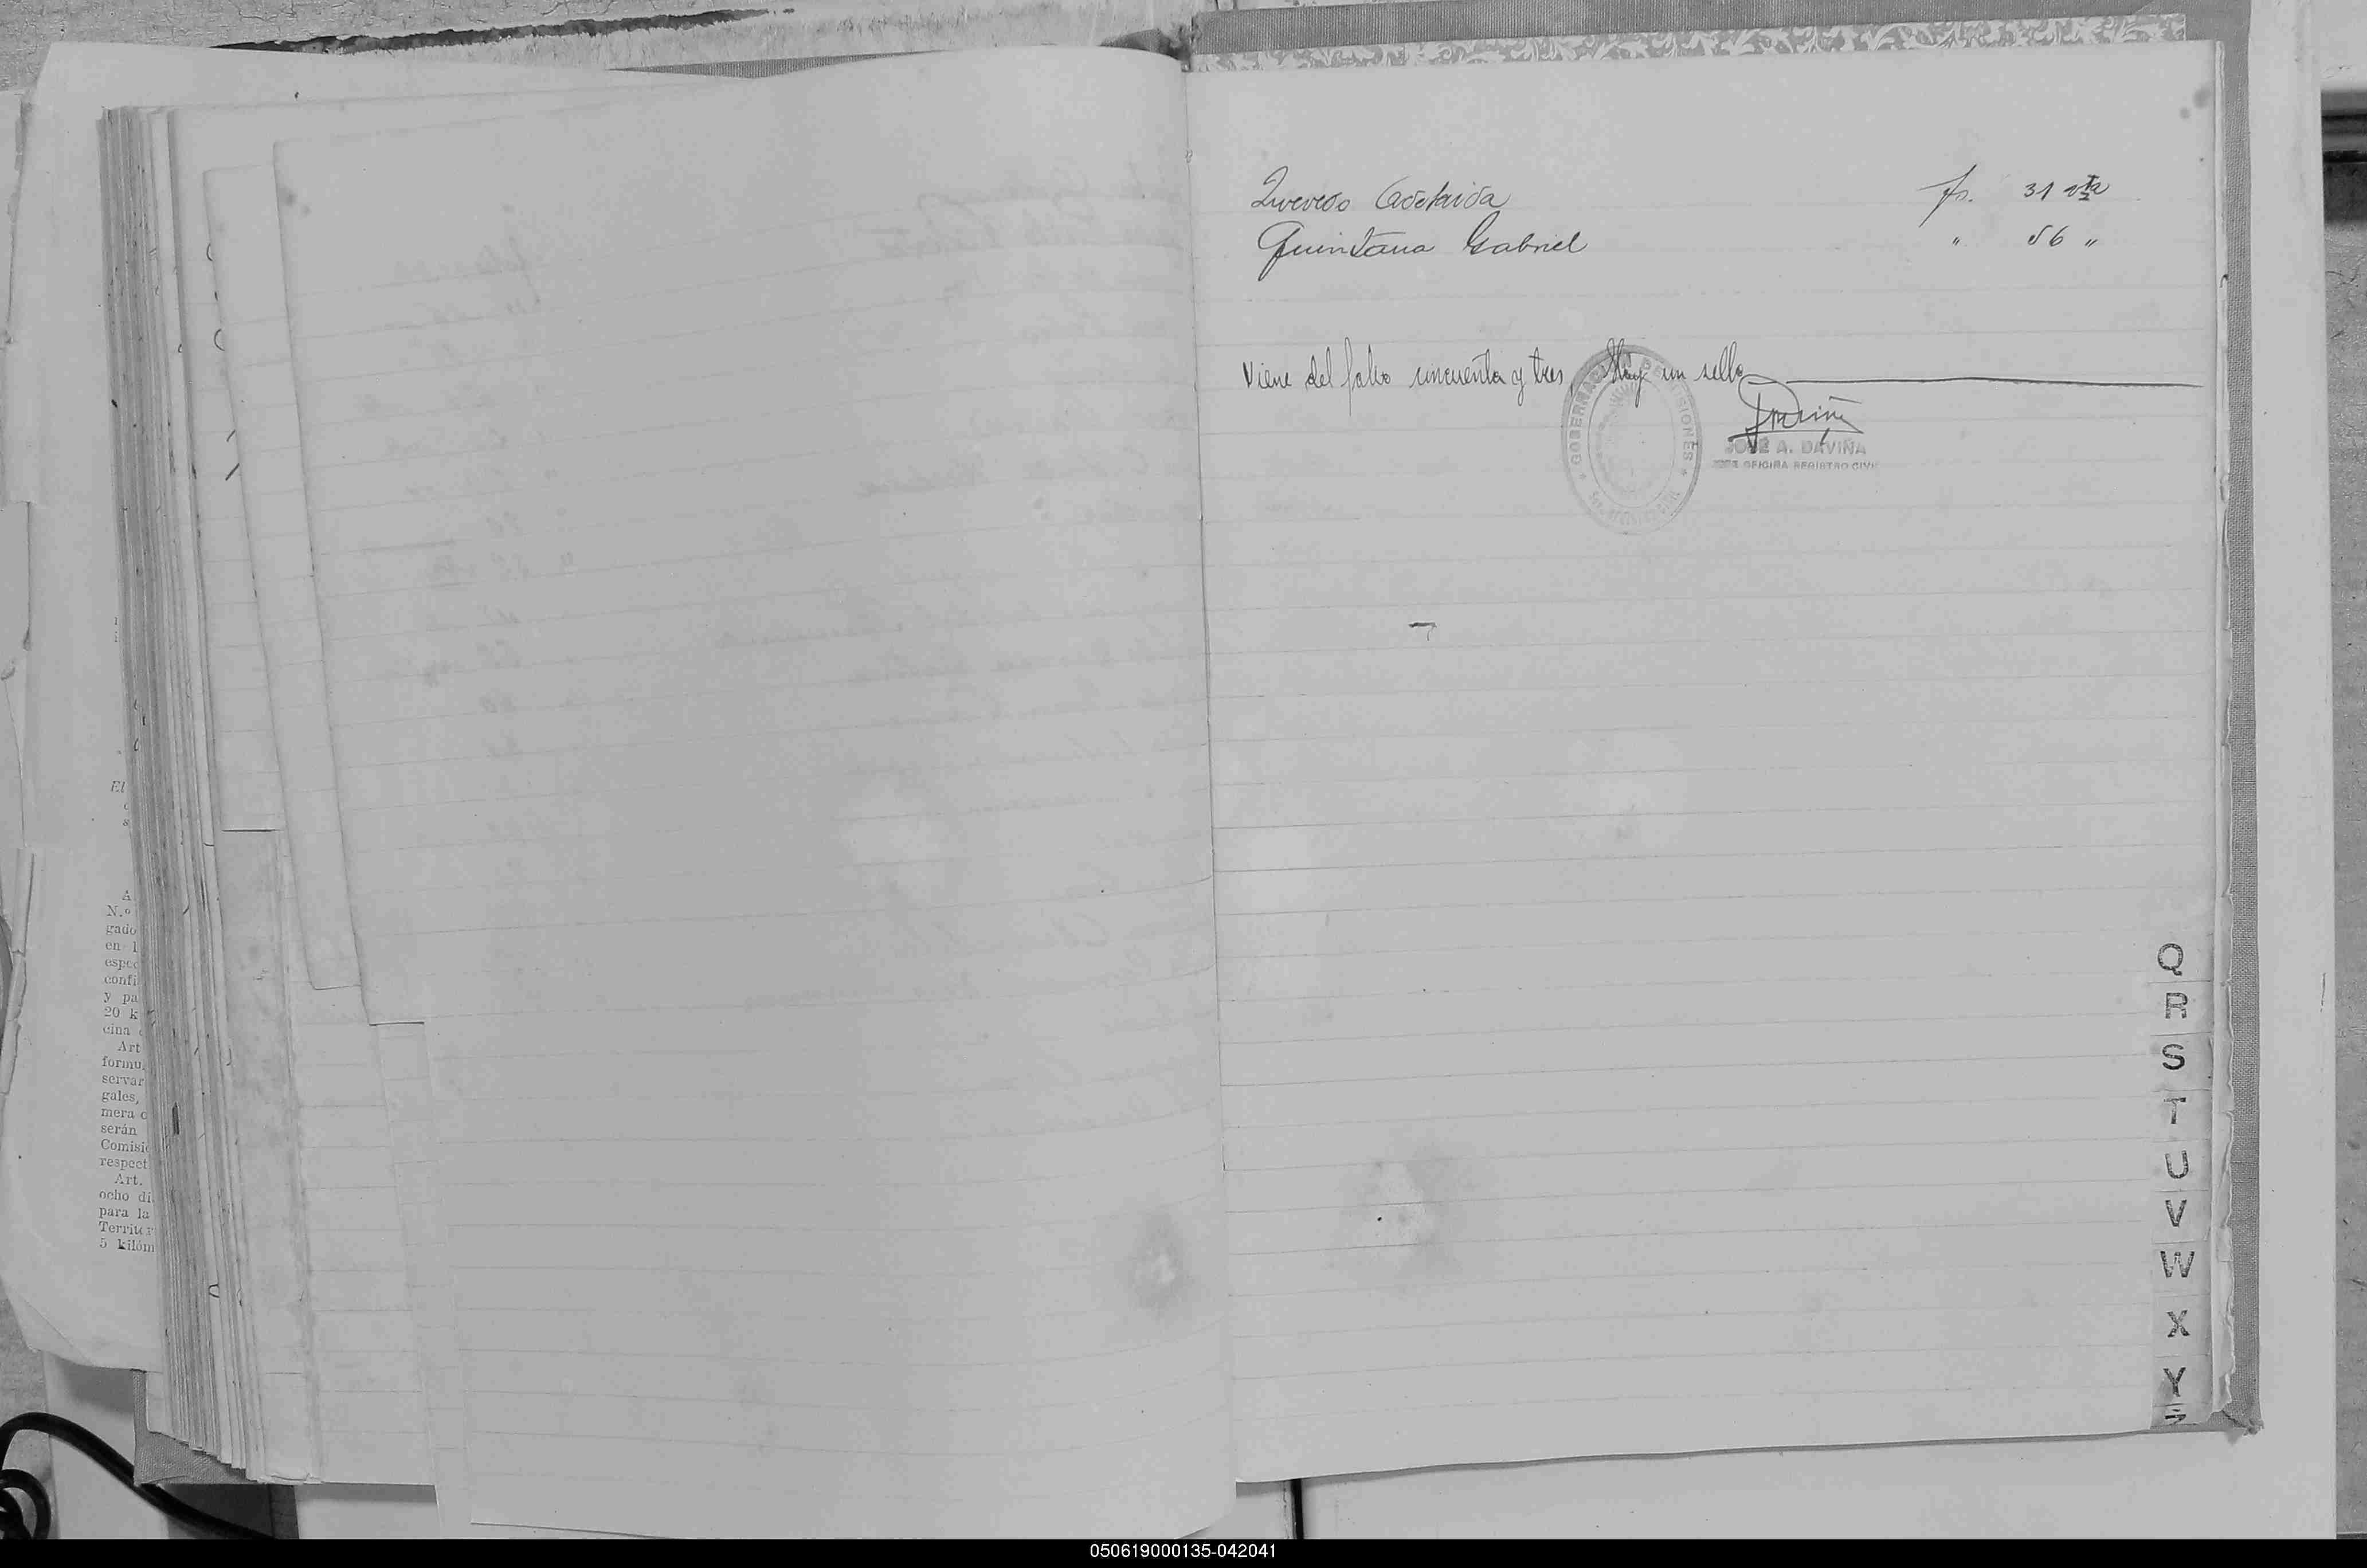 El
A
N.º
gado
en l
espec
confi
y pa
20 k
cina
Art
formu
servar
gales,
mera c
serán
Comisi
respect
Art.
ocho di
para la
Territor
5 kilóm
Quevedo Adelaida fs. 31 vta
Quintana Gabriel " 56 "
Viene del folio cincuenta y tres, Hay un sello
GOBERNACION DE MISIONES
JOSÉ A. DAVIÑA
JEFE OFICINA REGISTRO CIVIL
Q
R
S
T
U
V
W
X
Y
Z
050619000135-042041